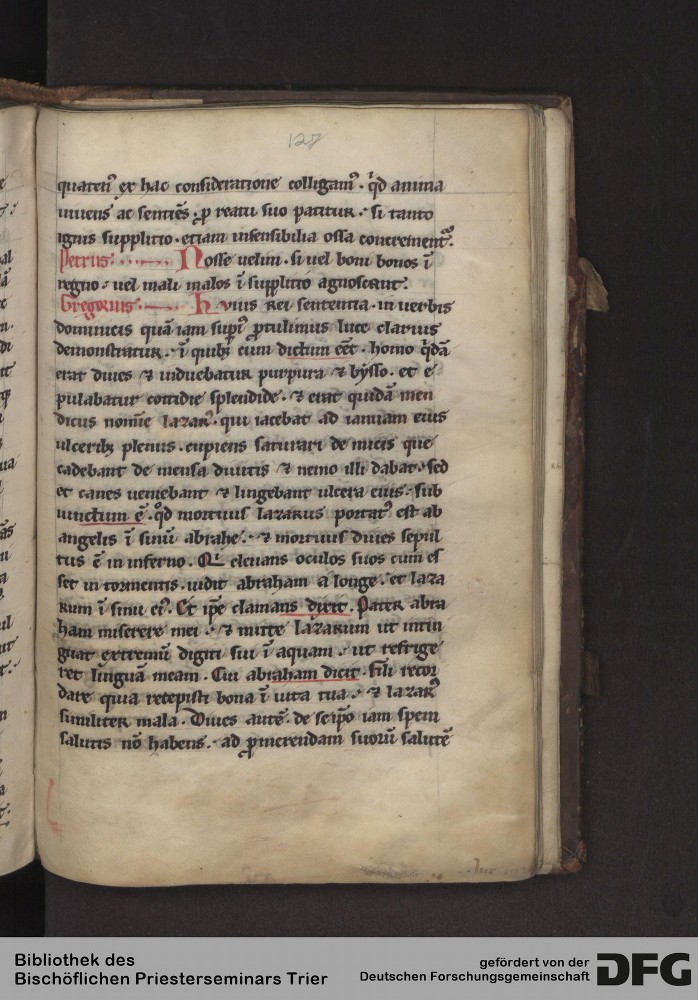 127
quaten⁹ ex hac consideratione colligam⁹ · qd anima
uiuens ac sentiēs · p reatu suo patitur · si tanto
ignis supplitio · etiam insensibilia ossa concrement̄ᷣ.
Petrus : Nosse uelim · si uel boni bonos ī
regno · uel mali malos ī supplitio agnoscunt.
Gregorius · Huius rei sententia · in uerbis
dominicis quā iam supi⁹ ptulimus luce clarius
demonstratur · ī quibꝫ cum dictum eēt · homo qdā
erat diues ⁊ induebatur purpura ⁊ bysso · et e
pulabatur cottidie splendide · ⁊ erat quidā men
dicus nomīe lazar⁹ · qui iacebat ad ianuam eius
ulceribꝫ plenus · cupiens saturari de micis que
cadebant de mensa diuitis ⁊ nemo illi dabat · sed
et canes ueniebant ⁊ lingebant ulcera eius · sub
iunctum ē · qd mortuus lazarus portat⁹ est ab
angelis ī sinū abrahe · ⁊ mortuus diues sepul
tus ē in inferno · Qi eleuans oculos suos cum es
set in tormentis · uidit abraham a longe · et laza
rum ī sinu ei⁹ · Et ipe clamans dixit · Pater abra
ham miserere mei · ⁊ mitte lazarum ut intin
guat extremū digiti sui ī aquam · ut refrige
ret linguā meam · Cui abraham dicit · Fili recor
dare quia recepisti bona ī uita tua · ⁊ lazar⁹
similiter mala · Diues autē · de seipo iam spem
salutis nō habens · ad pmerendam suorū salutē
Bibliothek des
Bischöflichen Priesterseminars Trier
gefördert von der
Deutschen Forschungsgemeinschaft
DFG